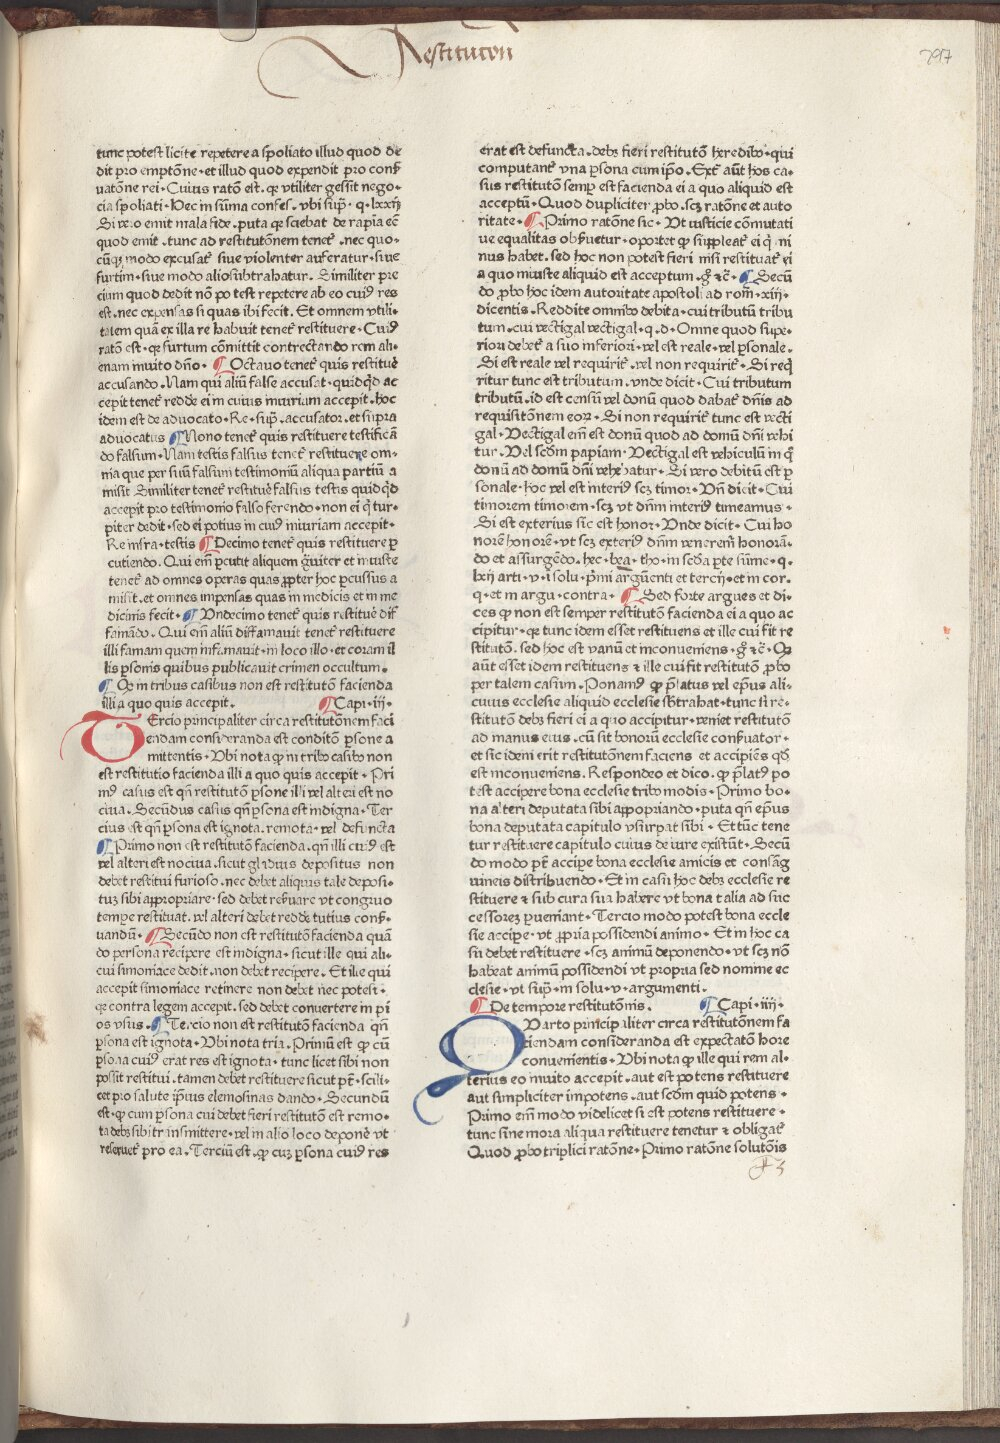 Restitucon
297
tunc potest licite repetere a spoliato illud quod de
dit pro emptōne · et illud quod expendit pro conß
uatōne rei · Cuius ratōn est . qꝛ vtiliter gessit nego·
cia spoliati · Hec in sūma confes . vbi supᵃ . q · lxxxij
Si vero emit mala fide . puta qꝛ sciebat de rapīa eē
quod emit . tunc ad restitutōnem tenetᷣ . nec quo·
cūqꝫ modo excusatᷣ siue violenter auferatur · siue
furtim · siue modo alio subtrahatur . Similiter pre
cium quod dedit nō potest repetere ab eo cuiꝰ res
est . nec expensas si quas ibi fecit . Et omnem vtili·
tatem quā ex illa re habuit tenetᷣ restituere · Cuiꝰ
ratōn est · qꝛ furtum cōmittit contrectando rem ali·
enam inuito dño . ¶ Octauo tenetᷣ quis restitue͛
accusando . Nam qui aliū false accusat · quidqͥd ac
cepit tenetᷣ redde͛ ei in cuius iniuriam accepit . hoc
idem est de aduocato · Re · supᵃ . accusator . et supra
aduocatus ¶ Nono tenetᷣ quis restituere testificā
do falsum · Nam testis falsus tenetᷣ restituere om·
nia que per suū falsum testimoniū aliqua partiū a
misit Similiter tenetᷣ restitue͛ falsus testis quidqͥd
accepit pro testimonio falso ferendo · non ei qͥ tur·
piter dedit · sed ei potius in cuiꝰ iniuriam accepit ·
Re infra · testis ¶ Decimo tenetᷣ quis restituere ꝑ
cutiendo . Qui em̄ ꝑcutit aliquem gͣuiter et iniuste
tenetᷣ ad omnes operas quas ꝓpter hoc ꝑcussus a
misit . et omnes impensas quas in medicis et in me
dicinis fecit · ¶ Vndecimo tenetᷣ quis restitue͛ dif
famādo . Qui em̄ aliū diffamauit tenetᷣ restituere
illi famam quem infamauit · in loco illo · et coram il
lis ꝑsonis quibus publicauit crimen occultum .
¶ Qꝙ in tribus casibus non est restitutō facienda
illi a quo quis accepit . ¶ Capi · iij ·
Tercio principaliter circa restitutōnem faci
endam consideranda est conditō ꝑsone a
mittentis · Vbi nota ꝙ in tribꝰ casibꝰ non
est restitutio facienda illi a quo quis accepit · Pri
mꝰ casus est qn̄ restitutō ꝑsone illi vel alteri est no
ciua . Secūdus casus qn̄ ꝑsona est indigna · Ter
cius est qn̄ ꝑsona est ignota . remota · vel defuncta
¶ Primo non est restitutō facienda . qn̄ illi cuiꝰ est
vel alteri est nociua . sicut gladius depositus non
debet restitui furioso . nec debet aliquis tale deposi·
tuꝫ sibi appropriare · sed debet reßuare vt congruo
tempe restituat . vel alteri debet redde͛ tutius conß·
uandū · ¶ Secūdo non est restitutō facienda quā
do persona recipere est indigna · sicut ille qui ali·
cui simoniace dedit . non debet recipere . Et ille qui
accepit simoniace retinere non debet nec potest ·
qꝛ contra legem accepit . sed debet conuertere in pi
os vsus . ¶ Tercio non est restitutō facienda qn̄
ꝑsona est ignota · Vbi nota tria . Primū est ꝙ cū
ꝑsona cuiꝰ erat res est ignota · tunc licet sibi non
possit restitui . tamen debet restituere sicut pꝫ . scili·
cet pro salute ip̄ius elemosinas dando · Secundū
est · ꝙ cum ꝑsona cui debet fieri restitutō est remo·
ta debꝫ sibi transmittere · vel in alio loco depone͛ vt
reseruetᷣ pro ea . Terciū est . ꝙ cuꝫ ꝑsona cuiꝰ res
erat est defuncta . debꝫ fieri restitutō heredibꝰ · qui
computantᷣ vna ꝑsona cum ip̄o . Extᵃ aūt hos ca·
sus restitutō semꝑ est facienda ei a quo aliquid est
acceptū . Quod dupliciter ꝓbo . scꝫ ratōne et auto
ritate · ¶ Primo ratōne sic · Vt iusticie cōmutati
ue equalitas obßuetur · oportet ꝙ suppleatᷣ ei qͥ mi
nus habet . sed hoc non potest fieri nisi restituatᷣ ei
a quo iniuste aliquid est acceptum . gͦ ⁊c̄ · ¶ Secū
do ꝓbo hoc idem autoritate apostoli ad rom̄ · xiij ·
dicentis . Reddite omnibꝰ debita · cui tributū tribu
tum . cui vectigal vectigal · q · d · Omne quod supe·
riori debetᷣ a suo inferiori . vel est reale · vel ꝑsonale .
Si est reale vel requiritᷣ . vel non requiritᷣ · Si reqͥ
ritur tunc est tributum . vnde dicit · Cui tributum
tributū . id est censū vel donū quod dabatᷣ dn̄is ad
requisitōnem eoꝝ . Si non requiritᷣ tunc est vecti
gal · Vectigal em̄ est donū quod ad domū dn̄i vehi
tur . Vel scd̄m papiam · Vectigal est vehiculū in qͦ
donū ad domū dn̄i vehebatur · Si vero debitū est ꝑ
sonale · hoc vel est interiꝰ scꝫ timor · Vn̄ dicit · Cui
timorem timorem · scꝫ vt dn̄m interiꝰ timeamus ·
Si est exterius sic est honor · Vnde dicit · Cui ho
norē honorē . vt scꝫ exteriꝰ dn̄m venerem̄ honorā·
do et assurgēdo . hec · bea · tho · in scd̄a ꝑte sūme · q ·
lxij arti · v · i solu · pͥmi argūenti et tercij · et in cor .
q · et in argu · contra · ¶ Sed forte argues et di·
ces ꝙ non est semper restitutō facienda ei a quo ac
cipitur · qꝛ tunc idem esset restituens et ille cui fit re
stitutō . sed hoc est vanū et inconueniens · gͦ ⁊c̄ · Qꝙ
aūt esset idem restituens ⁊ ille cui fit restitutō ꝓbo
per talem casum . Ponamꝰ ꝙ p̄latus vel ep̄us ali·
cuius ecclesie aliquid ecclesie sb̄trahat · tunc si re·
stitutō debꝫ fieri ei a quo accipitur · veniet restitutō
ad manus eius . cū sit bonorū ecclesie conßuator ·
et sic idem erit restitutōnem faciens et accipiēs qd̄
est inconueniens . Respondeo et dico . ꝙ p̄latꝰ po
test accipere bona ecclesie tribꝰ modis · Primo bo·
na alteri deputata sibi appropriando · puta qn̄ ep̄us
bona deputata capitulo vsurpat sibi · Et tūc tene
tur restituere capitulo cuius de iure existūt · Secū
do modo pͭt accipe͛ bona ecclesie amicis et consāg
uineis distribuendo · Et in casu hoc debꝫ ecclesie re
stituere ⁊ sub cura sua habere vt bona talia ad suc
cessoreꝫ ꝑueniant · Tercio modo potest bona eccle
sie accipe͛ · vt ꝓpria possidendi animo · Et in hoc ca
su debet restituere · scꝫ animū deponendo · vt scꝫ nō
habeat animū possidendi vt propria sed nomine ec
clesie · vt supᵃ · in solu · v · argumenti ·
¶ De tempore restitutōnis . ¶ Capi · iiij ·
Quarto principaliter circa restitutōnem fa
ciendam consideranda est expectatō hore
conuenientis · Vbi nota ꝙ ille qui rem al·
terius eo inuito accepit . aut est potens restituere
aut simpliciter impotens . aut scd̄m quid potens ·
Primo em̄ modo videlicet si est potens restituere ·
tunc sine mora aliqua restituere tenetur ⁊ obligatᷣ
Quod ꝓbo triplici ratōne · Primo ratōne solutōis